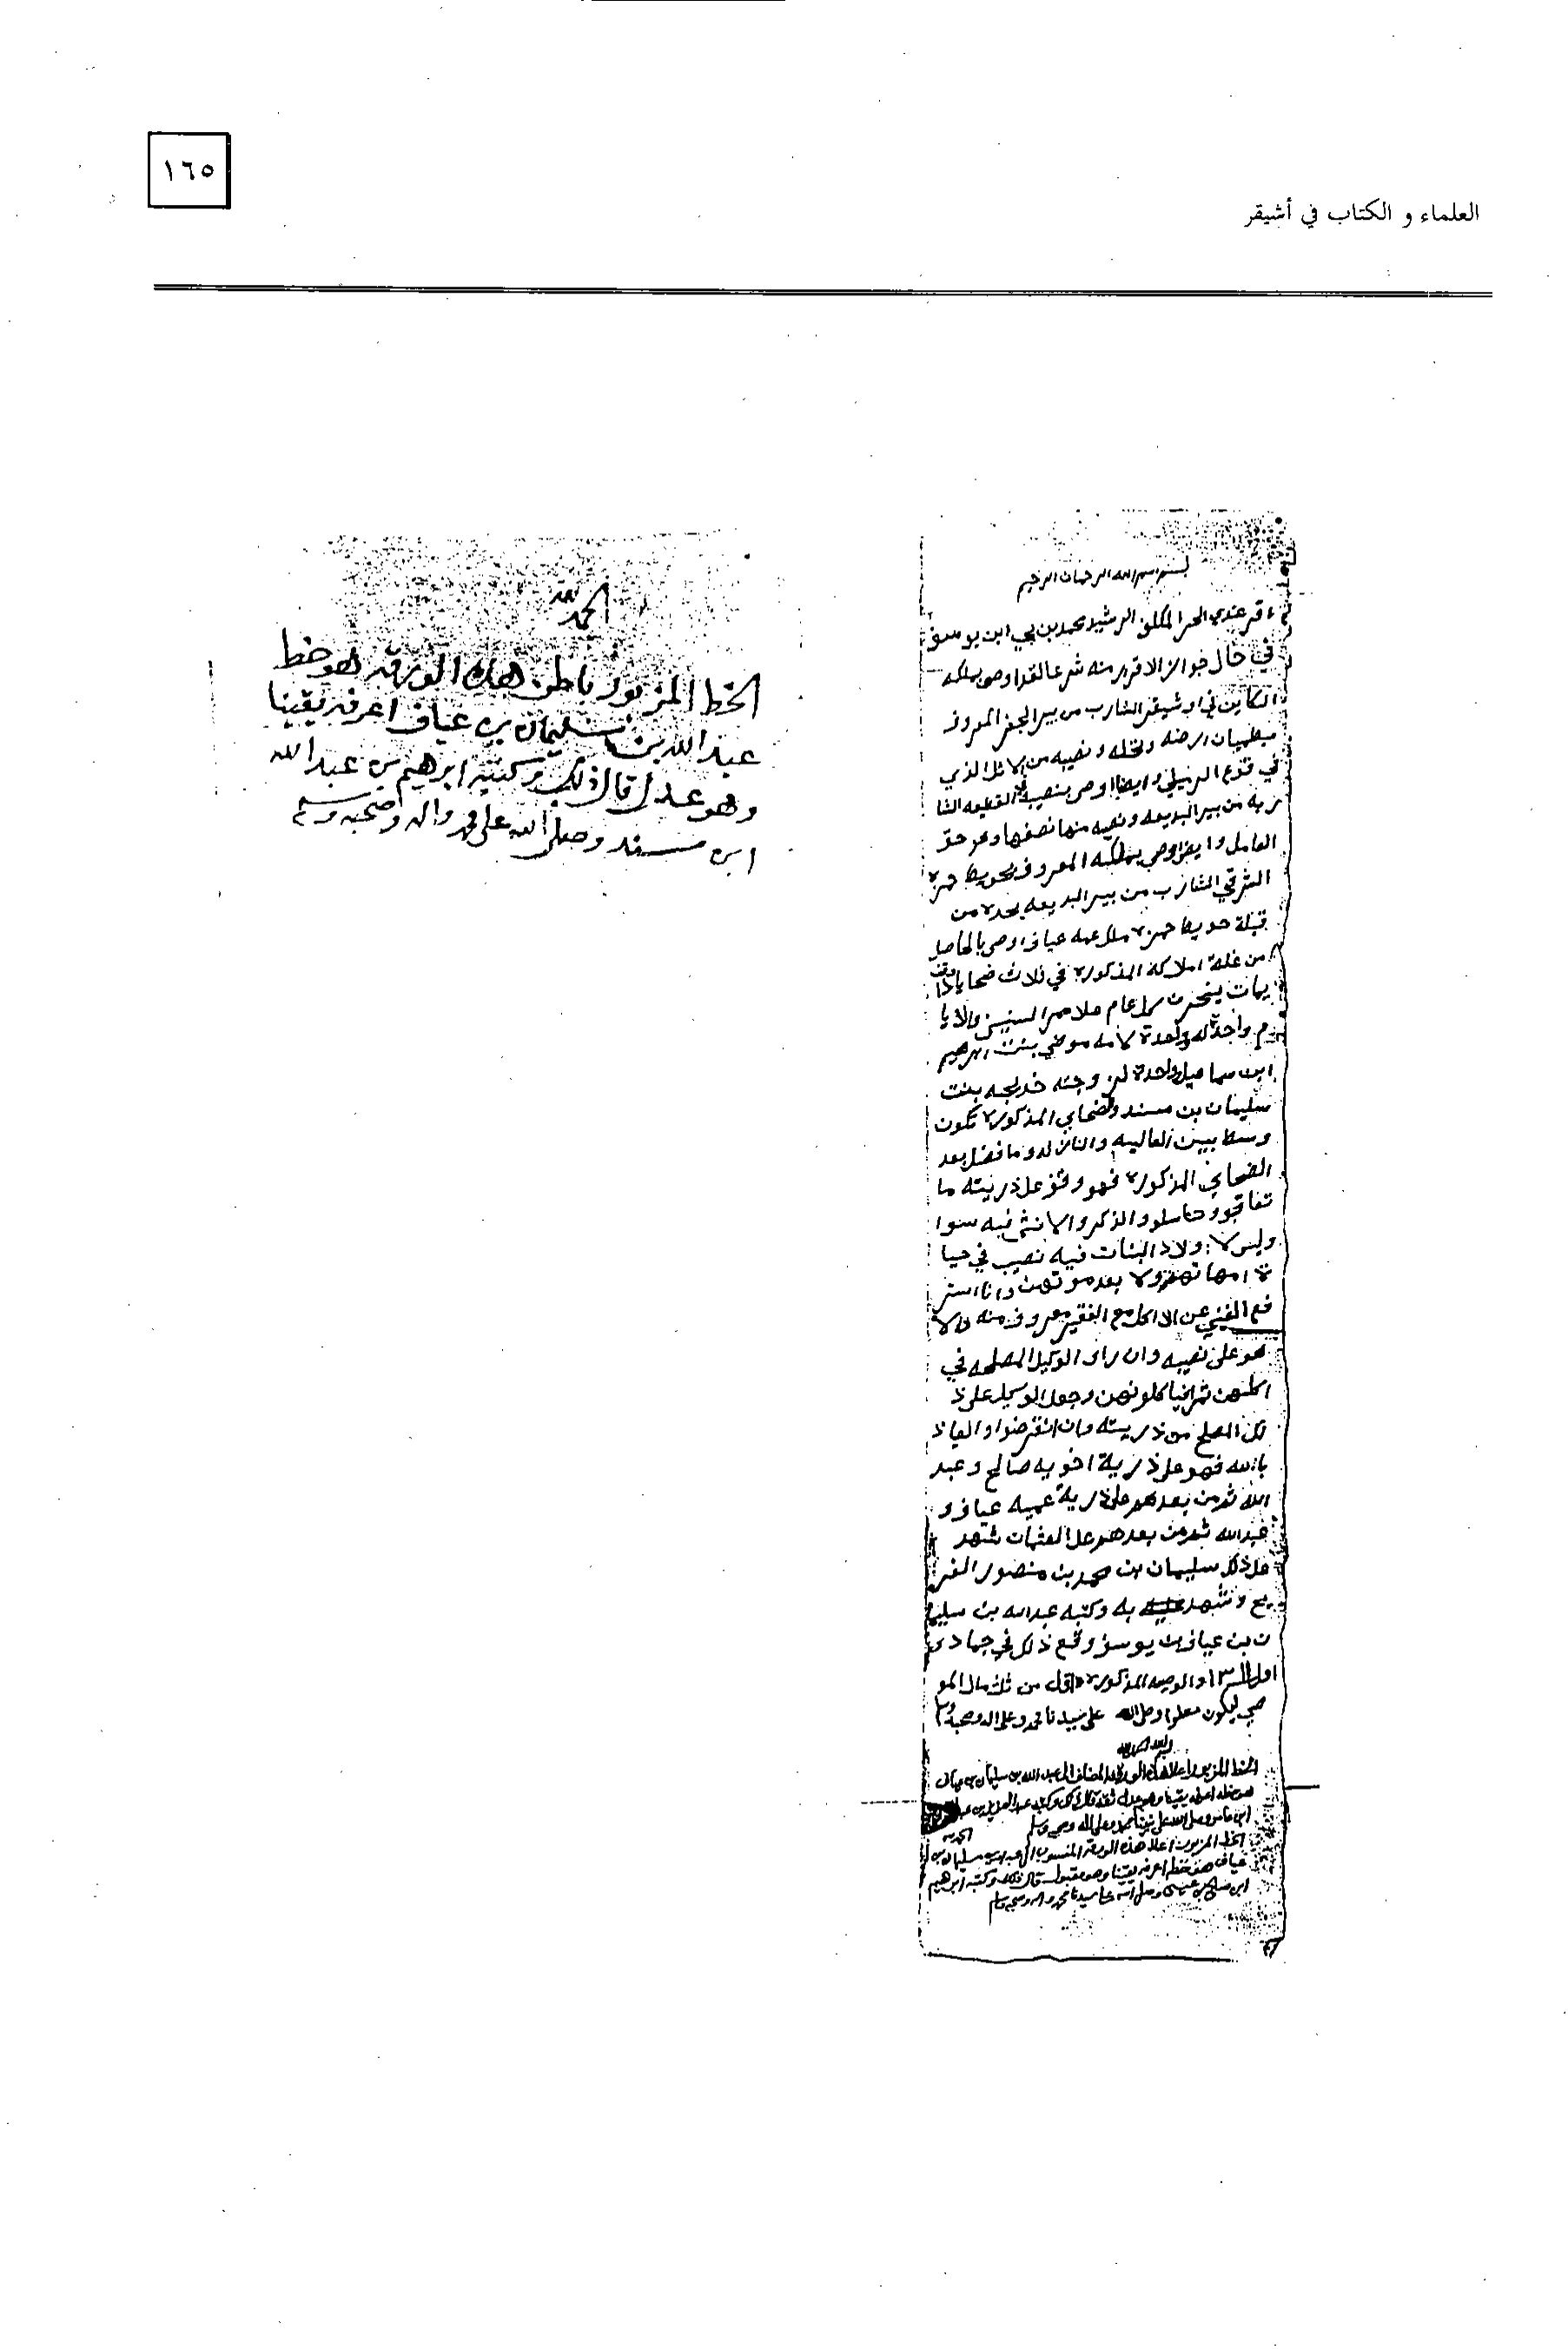 ١٦٥
العلماء و الكتاب في أشيقر
بسم الله الرحمان الرحيم
اقر عندي الحر المكلف الرشيد محمد بن يحي ابن يوسف
في حال جواز الاقرار منه شرعا لقد اوصى بملكه
الكاين في اوشيقر الشارب من بير الجفر المعروف
ارضه ونخله ونصيبه من الاثل الذي
في وايضا اوصى بنصيبه من القطيعه الشا
ربه من بير البديعه ونصيبه منها نصفها وعن حق
العامل وايضا اوصى بملكه المعروف بحويط حمزة
الشرقي الشارب من بير البديعه يحده من
قبلة حويط حمزة ملك عمه عياف اوصى بالحاصل
من غلة املاكه المذكورة في ثلاث ضحايا
يمات ينحرن كل عام على ممر السنين والايا
م واحدة له وواحدة لامه موضي بنت ابرهيم
ابن سماعيل وواحدة لزوجته خديجه بنت
سليمان بن مسند والضحاي المذكورة تكون
وسط بين الغاليه والنازله وما فضل بعد
الضحاي المذكورة فهو وقف على ذريته ما
تعاقبو وتناسلو والذكر والانثى فيه سوا
وليس لاولاد البنات فيه نصيب في حيا
ة امهاتهم ولا بعد موتهن وان استر
فع الغني عن الاكل مع الفقير معروف منه والا
هو على نصيبه وان راى الوكيل المصلحه في
اكلهن ثمر فيا كلونهن وجعل الوكيل على ذ
لك الصلح من ذريته وان انقرضوا والعياذ
بالله فهو على ذرية اخويه صالح وعبد
الله ثم من بعدهم على ذرية عميه عياف و
عبدالله ثم من بعدهم على شهد
على ذلك سليمان بن محمد بن منصور
وشهد به وكتبه عبدالله بن سليما
ن بن عياف بن يوسف وقع ذلك في جمادى
اول والوصيه المذكورة اقل من ثلث مال المو
صي ليكون معلوم وصلى الله على سيدنا محمد وعلى اله وصحبه وسلم
الحمد لله
الخط المزبور اعلا هذه الورقه المضاف الى عبدالله بن سليمان بن عياف
هو خطه اعرفه يقينا وهو عدل ثقه قال ذلك وكتبه عبد العزيز بن
ابن عامر وصلى الله على نبينا محمد وعلى اله وصحبه وسلم
الحمد لله
الخط المزبور اعلا هذه الورقه المنسوب الى عبدالله بن سليمان بن
عياف هو خطه اعرفه يقينا وهو مقبول قال ذلك وكتبه ابرهيم
ابن صالح بن عيسى وصلى الله على سيدنا محمد واله وصحبه وسلم
الحمد لله
الخط المزبور باطن هذه الورقه هو خط
عبدالله بن سليمان بن عياف اعرفه يقينا
وهو عدل قال ذلك وكتبه ابرهيم بن عبدالله
ابن مسند وصلى الله على محمد واله وصحبه وسلم